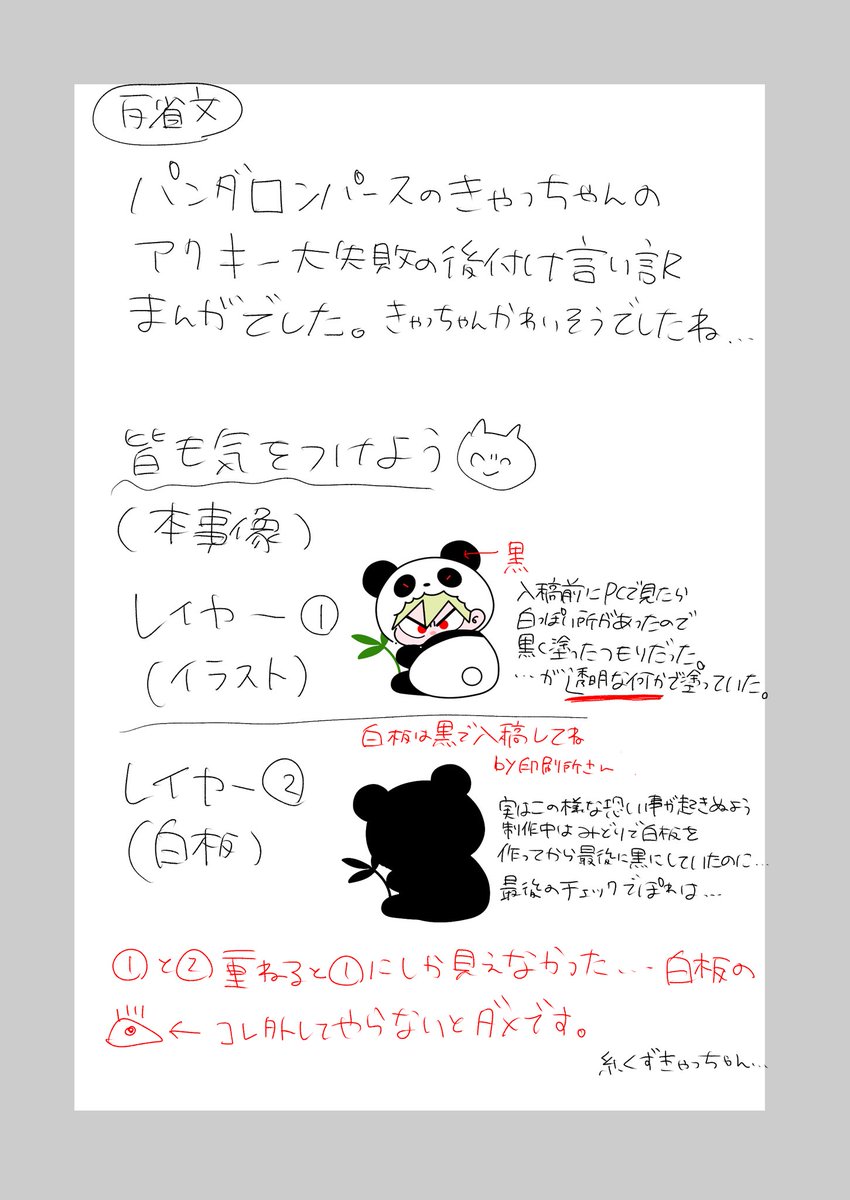 反省文
パンダロンパースのきゃっちゃんの
アクキー大失敗の後付け言い訳
まんがでした。きゃっちゃんかわいそうでしたね...
皆も気をつけよう
(本事像)
レイヤー①
(イラスト)
←黒
入稿前にPCで見たら
白っぽい所があったので
黒く塗ったつもりだった。
...が透明な何かで塗っていた。
白板は黒で入稿してね
by印刷所さん
レイヤー②
(白板)
実はこの様な恐い事が起きぬよう
制作中はみどりで白板を
作ってから最後に黒にしていたのに...
最後のチェックでぽれは...
①と②重ねると①にしか見えなかった...白板の
←コレ外してやらないとダメです。
糸くずきゃっちゃん...